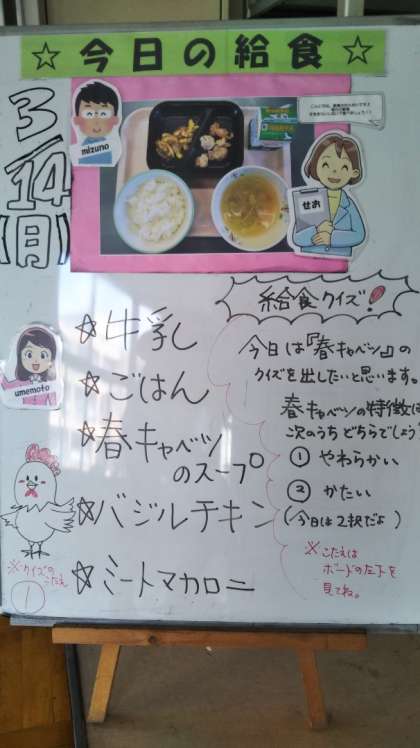 ☆今日の給食☆
3/14(月)
mizuno
せお
umemoto
☆牛乳
☆ごはん
☆春キャベツ
のスープ
☆バジルチキン
☆ミートマカロニ
給食クイズ!
今日は『春キャベツ』の
クイズを出したいと思います。
春キャベツの特徴は
次のうちどちらでしょう
① やわらかい
② かたい
(今日は2択だよ)
※こたえは
ボードの左下を
見てね。
※クイズの
こたえ
①